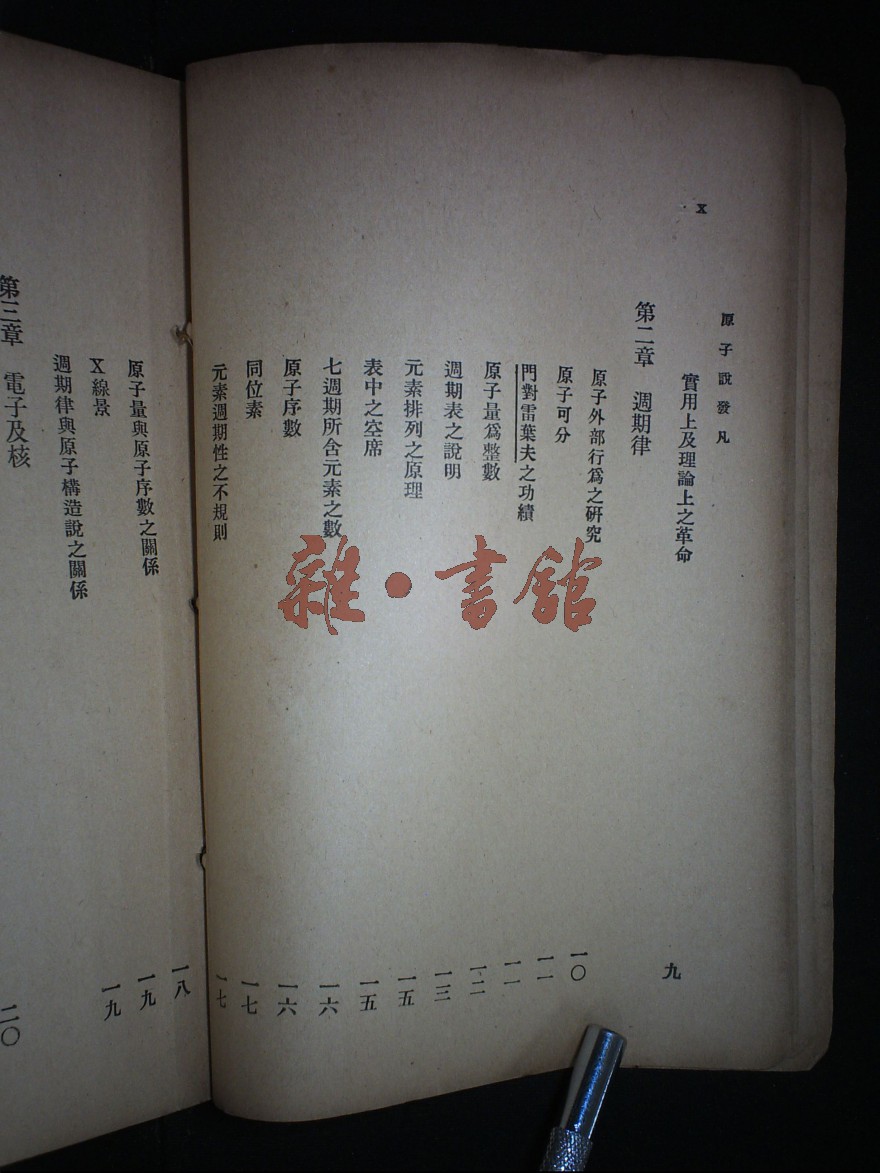 X
原子說發凡
實用上及理論上之革命 九
第二章 週期律
原子外部行爲之研究 一〇
原子可分 一一
門對雷葉夫之功績 一一
原子量爲整數 一二
週期表之說明 一三
元素排列之原理 一五
表中之空席 一五
七週期所含元素之數 一六
原子序數 一六
同位素 一七
元素週期性之不規則 一七
原子量與原子序數之關係 一八
X線景 一九
週期律與原子構造說之關係 一九
第三章 電子及核 二〇
雜·書館